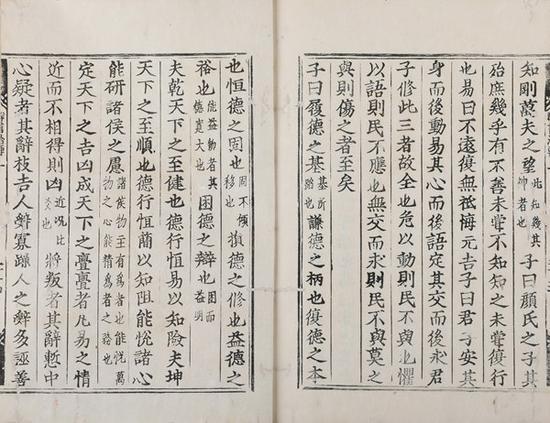 知剛萬夫之望此知幾其神者也子曰顔氏之子其
殆庶幾乎有不善未嘗不知知之未嘗復行
也易曰不遠復無祗悔元吉子曰君子安其
身而後動易其心而後語定其交而後求君
子修此三者故全也危以動則民不與也懼
以語則民不應也無交而求則民不與莫之
與則傷之者至矣
子曰履德之基基所蹈也謙德之柄也復德之本
也恒德之固也固不傾移也損德之修也益德之
裕也能益物者其德寛大也困德之辯也困而益明
夫乾天下之至健也德行恒易以知險夫坤
天下之至順也德行恒簡以知阻能悅諸心
能研諸侯之慮諸侯物主有爲者也能悅萬物之心能精爲者之務也
定天下之吉凶成天下之亹亹者凡易之情
近而不相得則凶近況比爻也將叛者其辭慙中
心疑者其辭枝吉人辭寡躁人之辭多誣善